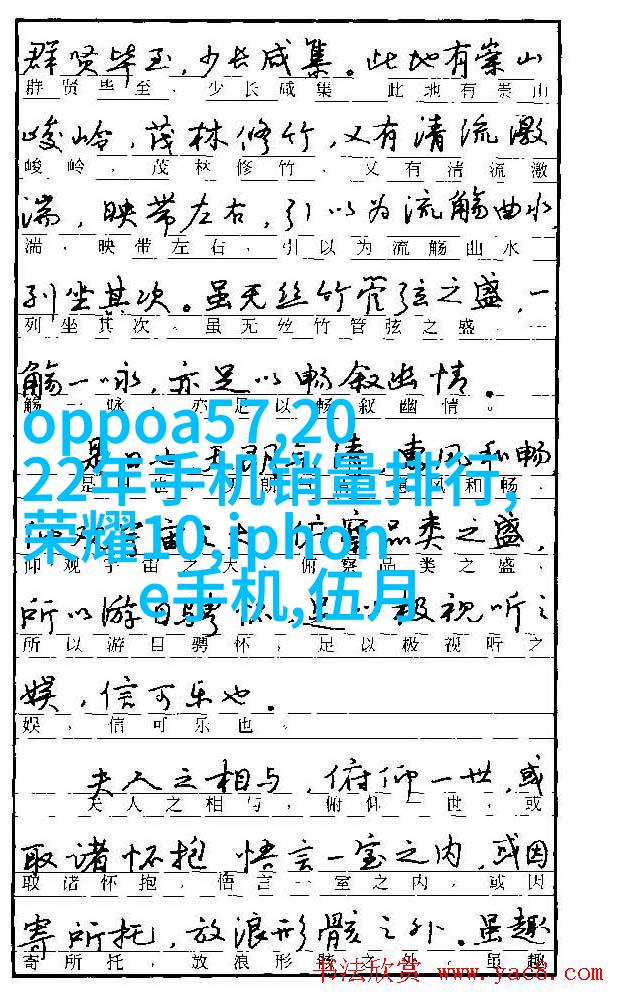 群贤毕至，少长咸集。此地有崇山
群贤毕至，少长咸集。此地有崇山
峻岭，茂林修竹，又有清流激
峻岭，茂林修竹，又有清流激
湍，映带左右，引以为流觞曲水，
湍，映带左右，引以为流觞曲水
列坐其次。虽无丝竹管弦之盛，一
列坐其次。虽无丝竹管弦之盛，一
觞一咏，亦足以畅叙幽情。
觞一咏，亦足以畅叙幽情。
oppoa57,20
22年手机销量排行,
荣耀10,iphon
e手机,伍月
是日也，天朗气清，惠风和畅
是日也，天朗气清，惠风和畅，
仰观宇宙之大，俯察品类之盛，
仰观宇宙之大，俯察品类之盛，
所以游目骋怀，足以极视听之
所以游目骋怀，足以极视听之
娱，信可乐也。
娱，信可乐也。
夫人之相与，俯仰一世，或
夫人之相与，俯仰一世，或
取诸怀抱 悟言一室之内，或因
取诸怀抱，悟言一室之内，或因
寄所托，放浪形骸之外。虽趣
寄所托，放浪形骸之外。虽趣
书法欣赏 www.yac8.com